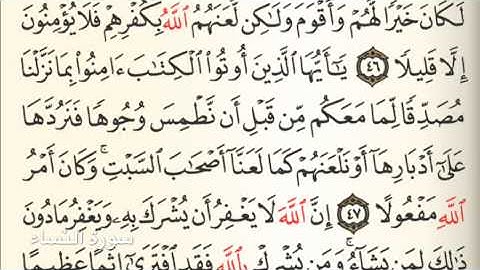 لَكَانَ خَيْرًا لَّهُمْ وَأَقْوَمَ وَلَٰكِن لَّعَنَهُمُ ٱللَّهُ بِكُفْرِهِمْ فَلَا يُؤْمِنُونَ
إِلَّا قَلِيلًا ٤٦ يَٰٓأَيُّهَا ٱلَّذِينَ أُوتُوا۟ ٱلْكِتَٰبَ ءَامِنُوا۟ بِمَا نَزَّلْنَا
مُصَدِّقًا لِّمَا مَعَكُم مِّن قَبْلِ أَن نَّطْمِسَ وُجُوهًا فَنَرُدَّهَا
عَلَىٰٓ أَدْبَارِهَآ أَوْ نَلْعَنَهُمْ كَمَا لَعَنَّآ أَصْحَٰبَ ٱلسَّبْتِ ۚ وَكَانَ أَمْرُ
ٱللَّهِ مَفْعُولًا ٤٧ إِنَّ ٱللَّهَ لَا يَغْفِرُ أَن يُشْرَكَ بِهِۦ وَيَغْفِرُ مَا دُونَ
ذَٰلِكَ لِمَن يَشَآءُ ۚ وَمَن يُشْرِكْ بِٱللَّهِ فَقَدِ ٱفْتَرَىٰٓ إِثْمًا عَظِيمًا
سورة النساء